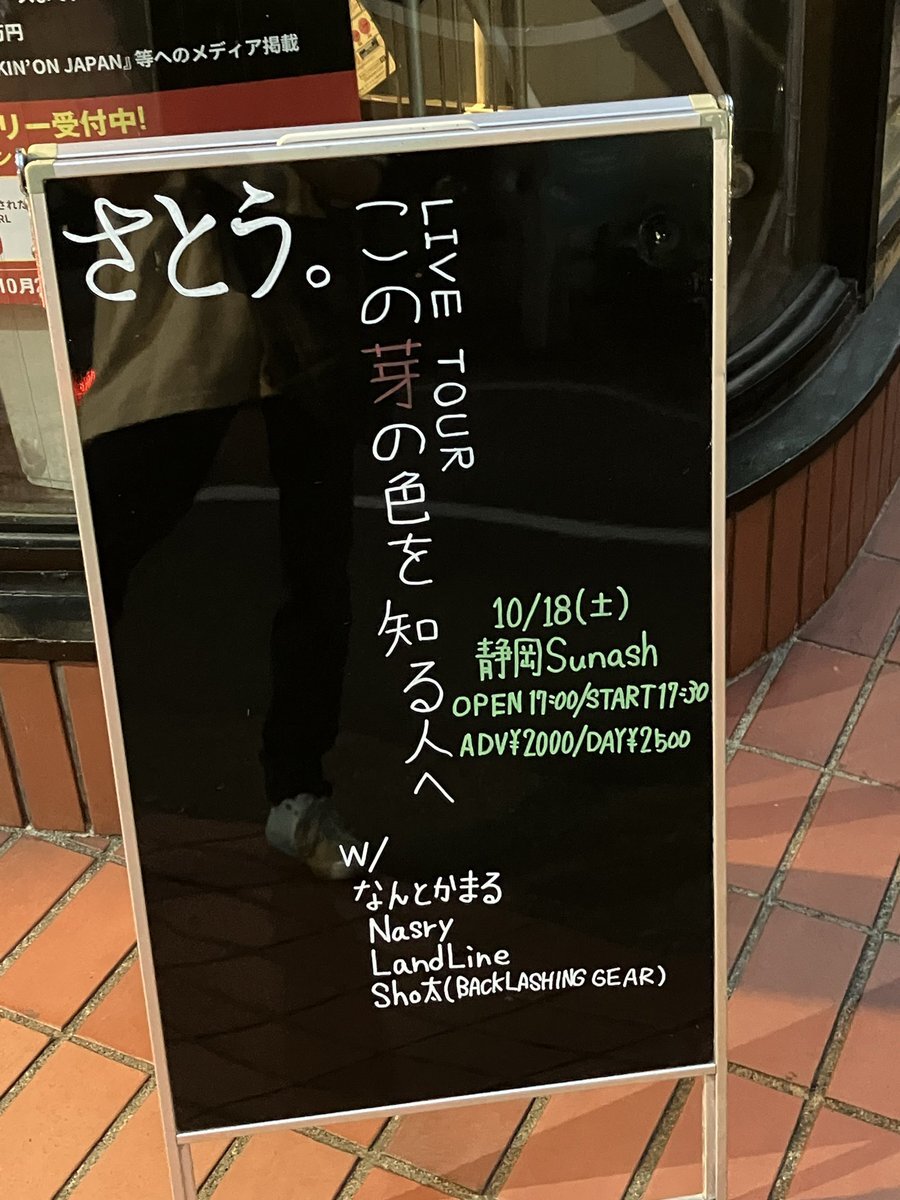 万円
KIN'ON JAPAN』等へのメディア掲載
リー受付中!
された
RL
10月
さとう。
LIVE TOUR
この芽の色を知る人へ
10/18(土)
静岡Sunash
OPEN 17:00/START 17:30
ADV¥2000/DAY¥2500
w/
なんとかまる
Nasry
LandLine
Sho太(BACKLASHING GEAR)